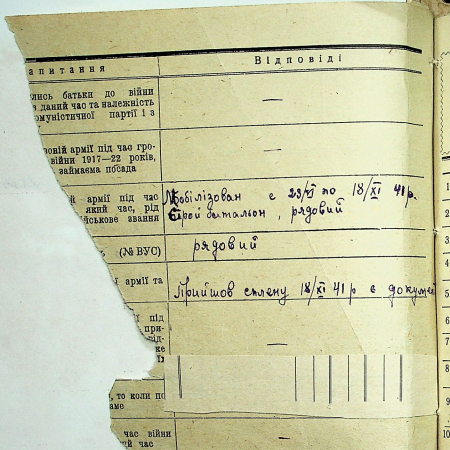 апитання
Відповіді
лись батьки до війни
в даний час та належність
омуністичної партії і з
—
воній армії під час гро-
війни 1917—22 років,
займаєма посада
—
й армії під час
який час, рід
йськове звання
Мобілізован с 23/VI по 18/XI 41 р.
Строй батальон, рядовий
(№ ВУС)
рядовий
армії та
Прийшов с плену 18/XI 41 р є докумен
під
при-
від-
же
їх
—
, то коли по
аме
час війни
ий час
—
1
2
3
4
5
6
7
8
9
10